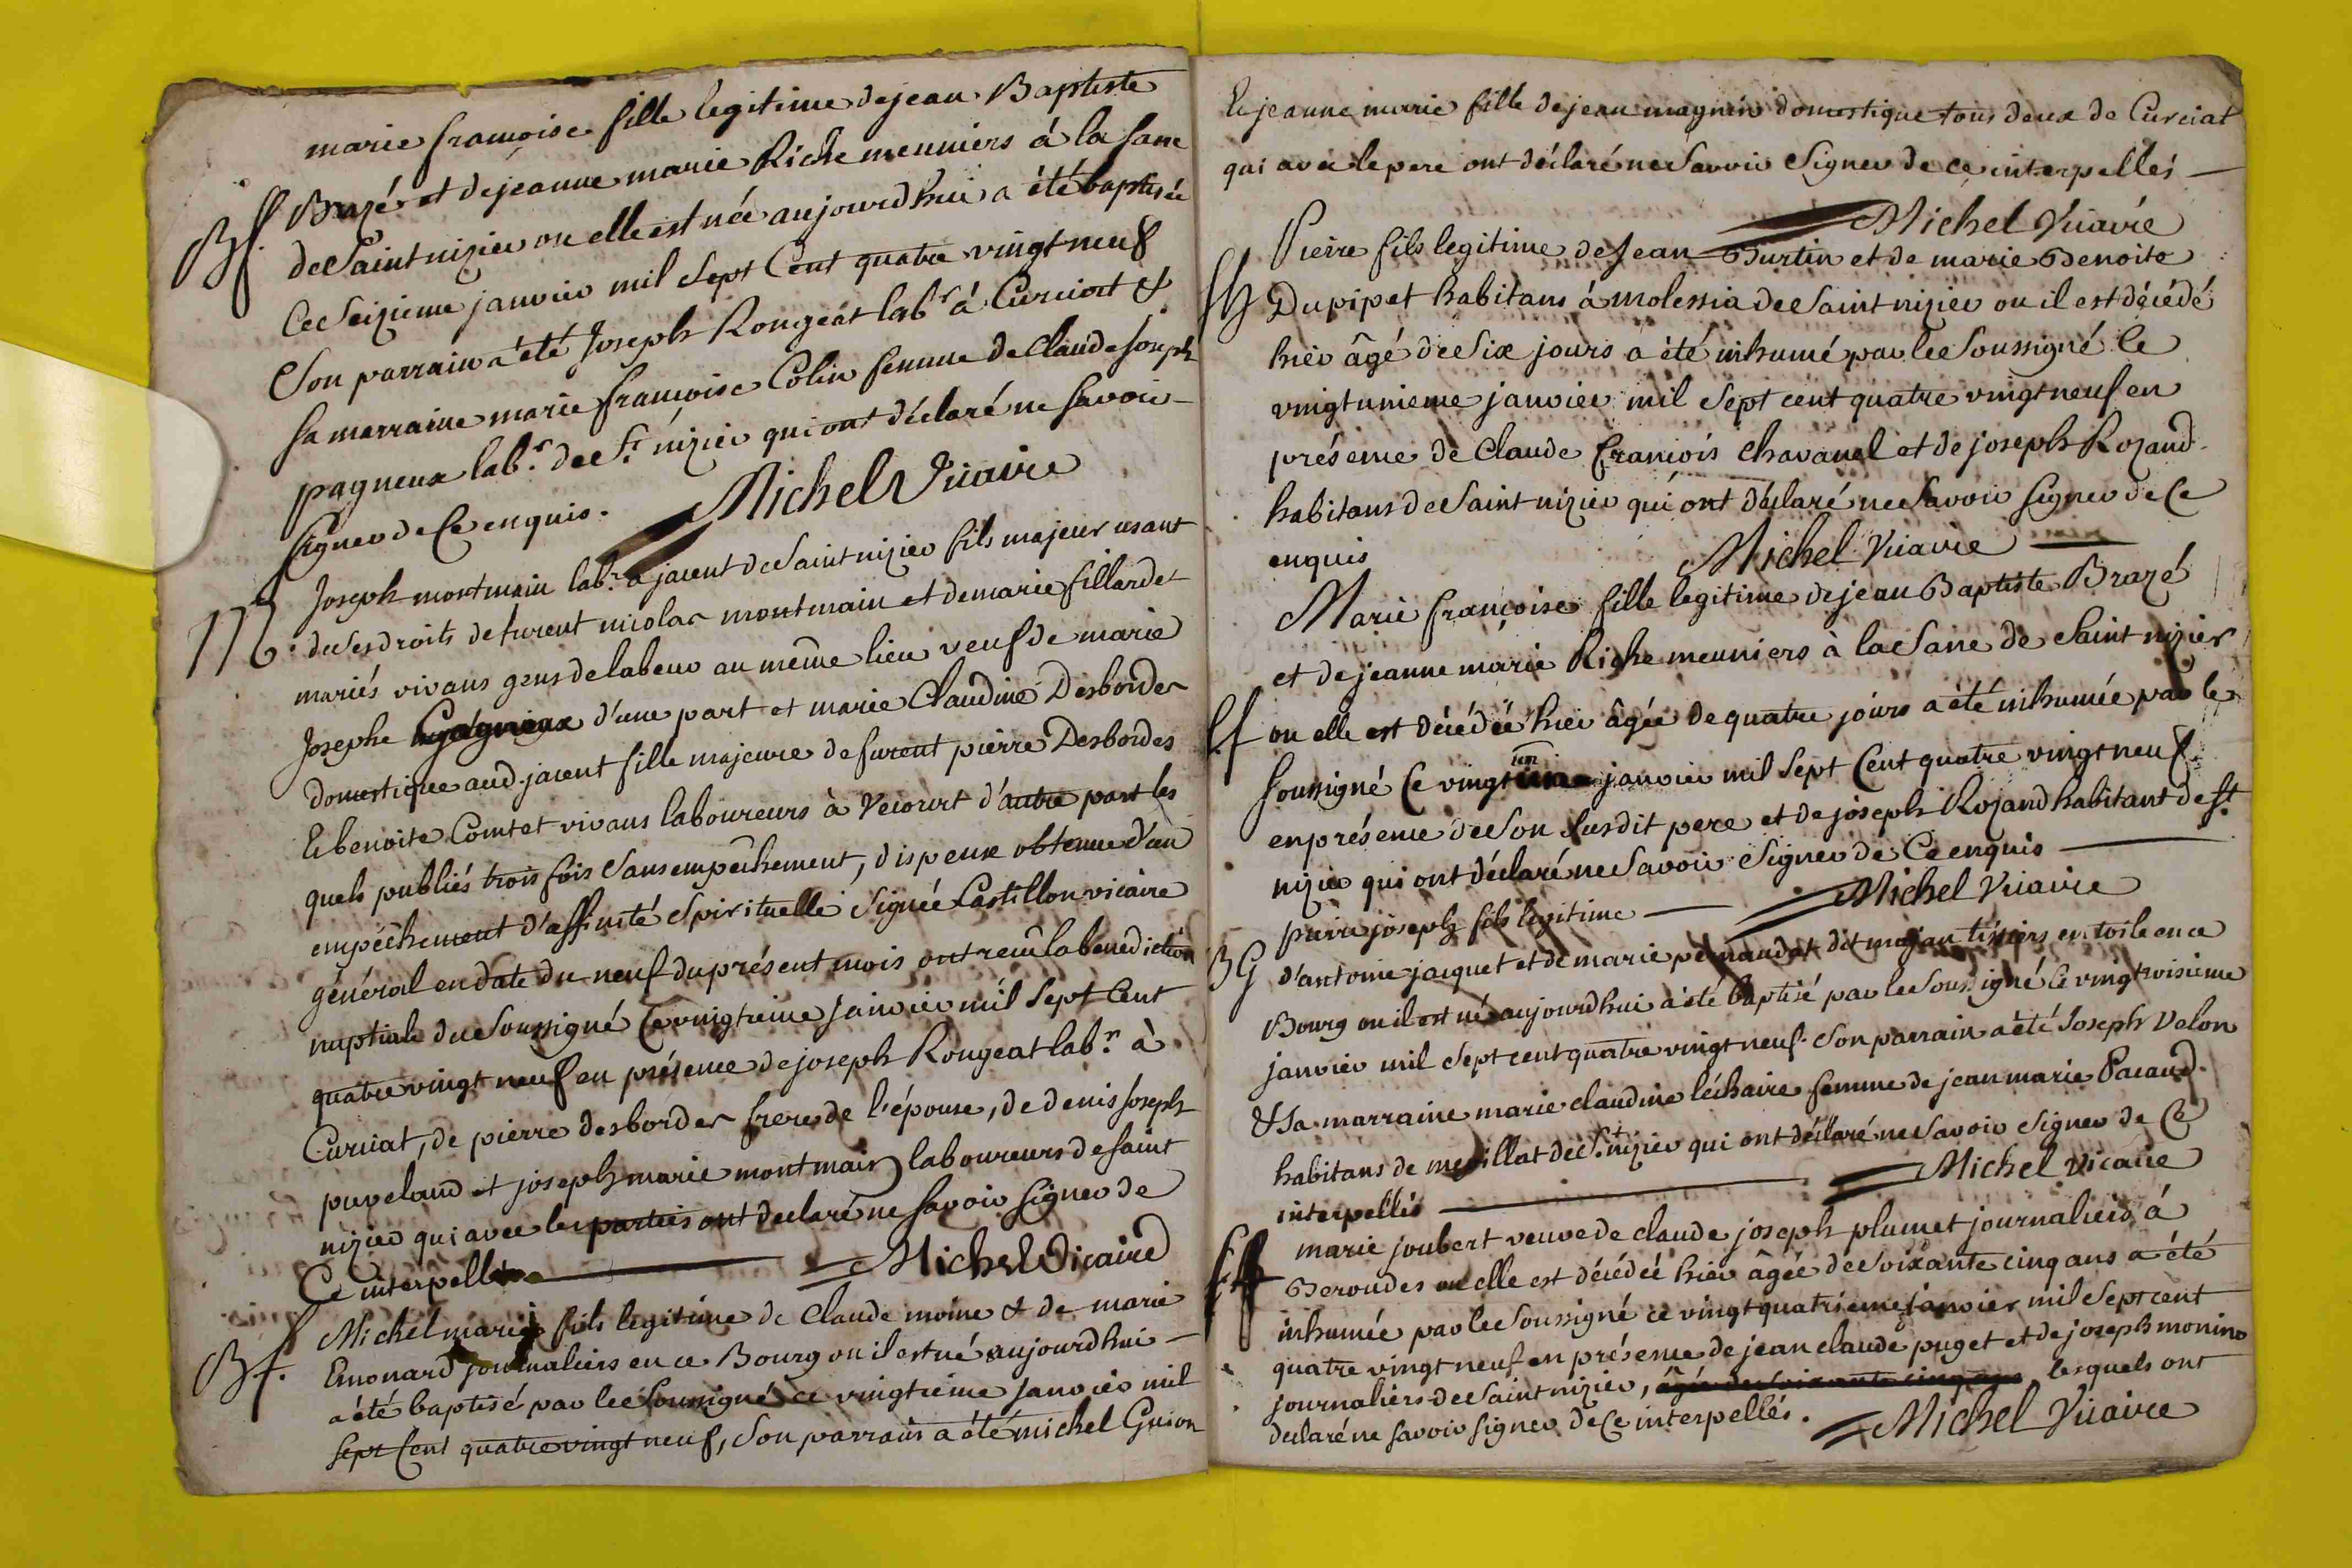 marie françoise fille legitime de jean Baptiste
Bf. Brazé et de jeanne marie Riche meuniers à la sane
de Saint nizier ou elle est née aujourdhui a été baptisée
Ce Seizieme janvier mil Sept Cent quatre vingt neuf
Son parrain a été Joseph Rongeat labr à Curciat &
Sa marraine marie françoise Colin femme de Claude Joseph
pagneux labr. de St. nizier qui ont déclaré ne Savoir
Signer de Ce enquis. Michel Vicaire
M. Joseph montmain labr. a jacent de Saint nizier fils majeur usant
de ses droits de furent nicolas montmain et de marie fillardet
mariés vivans gens de labeur au même lieu veuf de marie
Josephe d'une part et marie Claudine Desbordes
domestique aud. jacent fille majeure de furent pierre Desbordes
& benoite Comtet vivans laboureurs à Vecourt d'autre part les
quels publiés trois fois Sans empêchement, dispense obtenue d'un
empêchement d'affinité Spirituelle Signée Castillon vicaire
général en date du neuf du présent mois ont reçu la benediction
nuptiale du Soussigné Ce vingtieme janvier mil Sept Cent
quatre vingt neuf en présence de joseph Rongeat labr. à
Curciat, de pierre desbordes frere de l'épouse, de denis joseph
puveland et joseph marie montmain laboureurs de Saint
nizier qui avec les parties ont declaré ne Savoir Signer de
Ce interpellés Michel Vicaire
Bf. Michel marie fils legitime de Claude moine & de marie
Emonard journaliers en ce Bourg ou il est né aujourdhui
a été baptisé par le Soussigné ce vingtieme Janvier mil
Sept Cent quatre vingt neuf, Son parrain a été michel Guion
& jeanne marie fille de jean magnin domestique tous deux de Curciat
qui avec le pere ont déclaré ne Savoir Signer de ce interpellés
Michel Vicaire
Pierre fils legitime de Jean Burtin et de marie Benoite
Dupipet habitans à molessia de Saint nizier ou il est décédé
hier âgé de Six jours a été inhumé par le Soussigné le
vingtunieme janvier mil Sept cent quatre vingt neuf en
présence de Claude François Chavanel et de joseph Rozand
habitans de Saint nizier qui ont déclaré ne Savoir Signer de Ce
enquis Michel Vicaire
Marie françoise fille legitime de jean Baptiste Brazé
et de jeanne marie Riche meuniers à la Sane de Saint nizier
Sf ou elle est décédée hier âgée de quatre jours a été inhumée par le
Soussigné Ce vingt un janvier mil Sept Cent quatre vingt neuf
en présence de Son Susdit pere et de joseph Rojand habitant de St.
nizier qui ont déclaré ne Savoir Signer de Ce enquis
Michel Vicaire
pierre joseph fils legitime
BG d'antoine jacquet et de marie pernaudat dit majan tissiers en toile en ce
Bourg ou il est né aujourdhui a été baptisé par le Soussigné Ce vingt troisieme
janvier mil Sept cent quatre vingt neuf. Son parrain a été Joseph Velon
& Sa marraine marie claudine léchaire femme de jean marie Pacaud
habitans de mesillat de St. nizier qui ont déclaré ne Savoir Signer de Ce
interpellés Michel Vicaire
marie joubert veuve de claude joseph plumet journaliers à
Beroudes ou elle est décédée hier âgée de Soixante cinq ans a été
inhumée par le Soussigné ce vingt quatrieme janvier mil Sept cent
quatre vingt neuf en présence de jean claude puget et de joseph monin
journaliers de Saint nizier, âgée de Soixante cinq ans lesquels ont
declaré ne Savoir Signer de Ce interpellés. Michel Vicaire